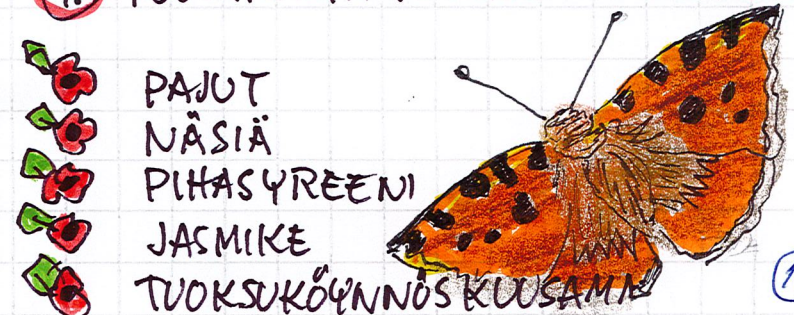 PAJUT
NÄSIÄ
PIHASYREENI
JASMIKE
TUOKSUKÖYNNÖSKUUSAMA